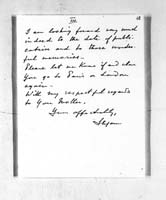 III.
I am looking forward very much
indeed to the date of publi-
cation and to those wonder-
ful memories.
Please let me know if and when
you go to Paris or London
again.
With my respectful regards
to your Mother,
Yours affectionately,